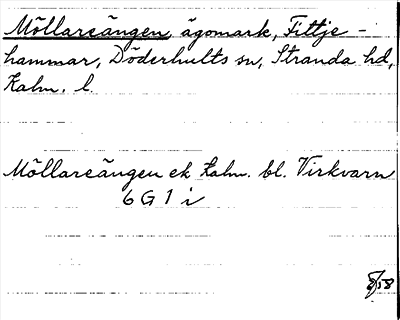 Möllareängen, ägomark, Fittje -
hammar, Döderhults sn, Stranda hd,
Kalm. l.
Möllareängen ek Kalm. bl. Virkvarn
6 G 1 i